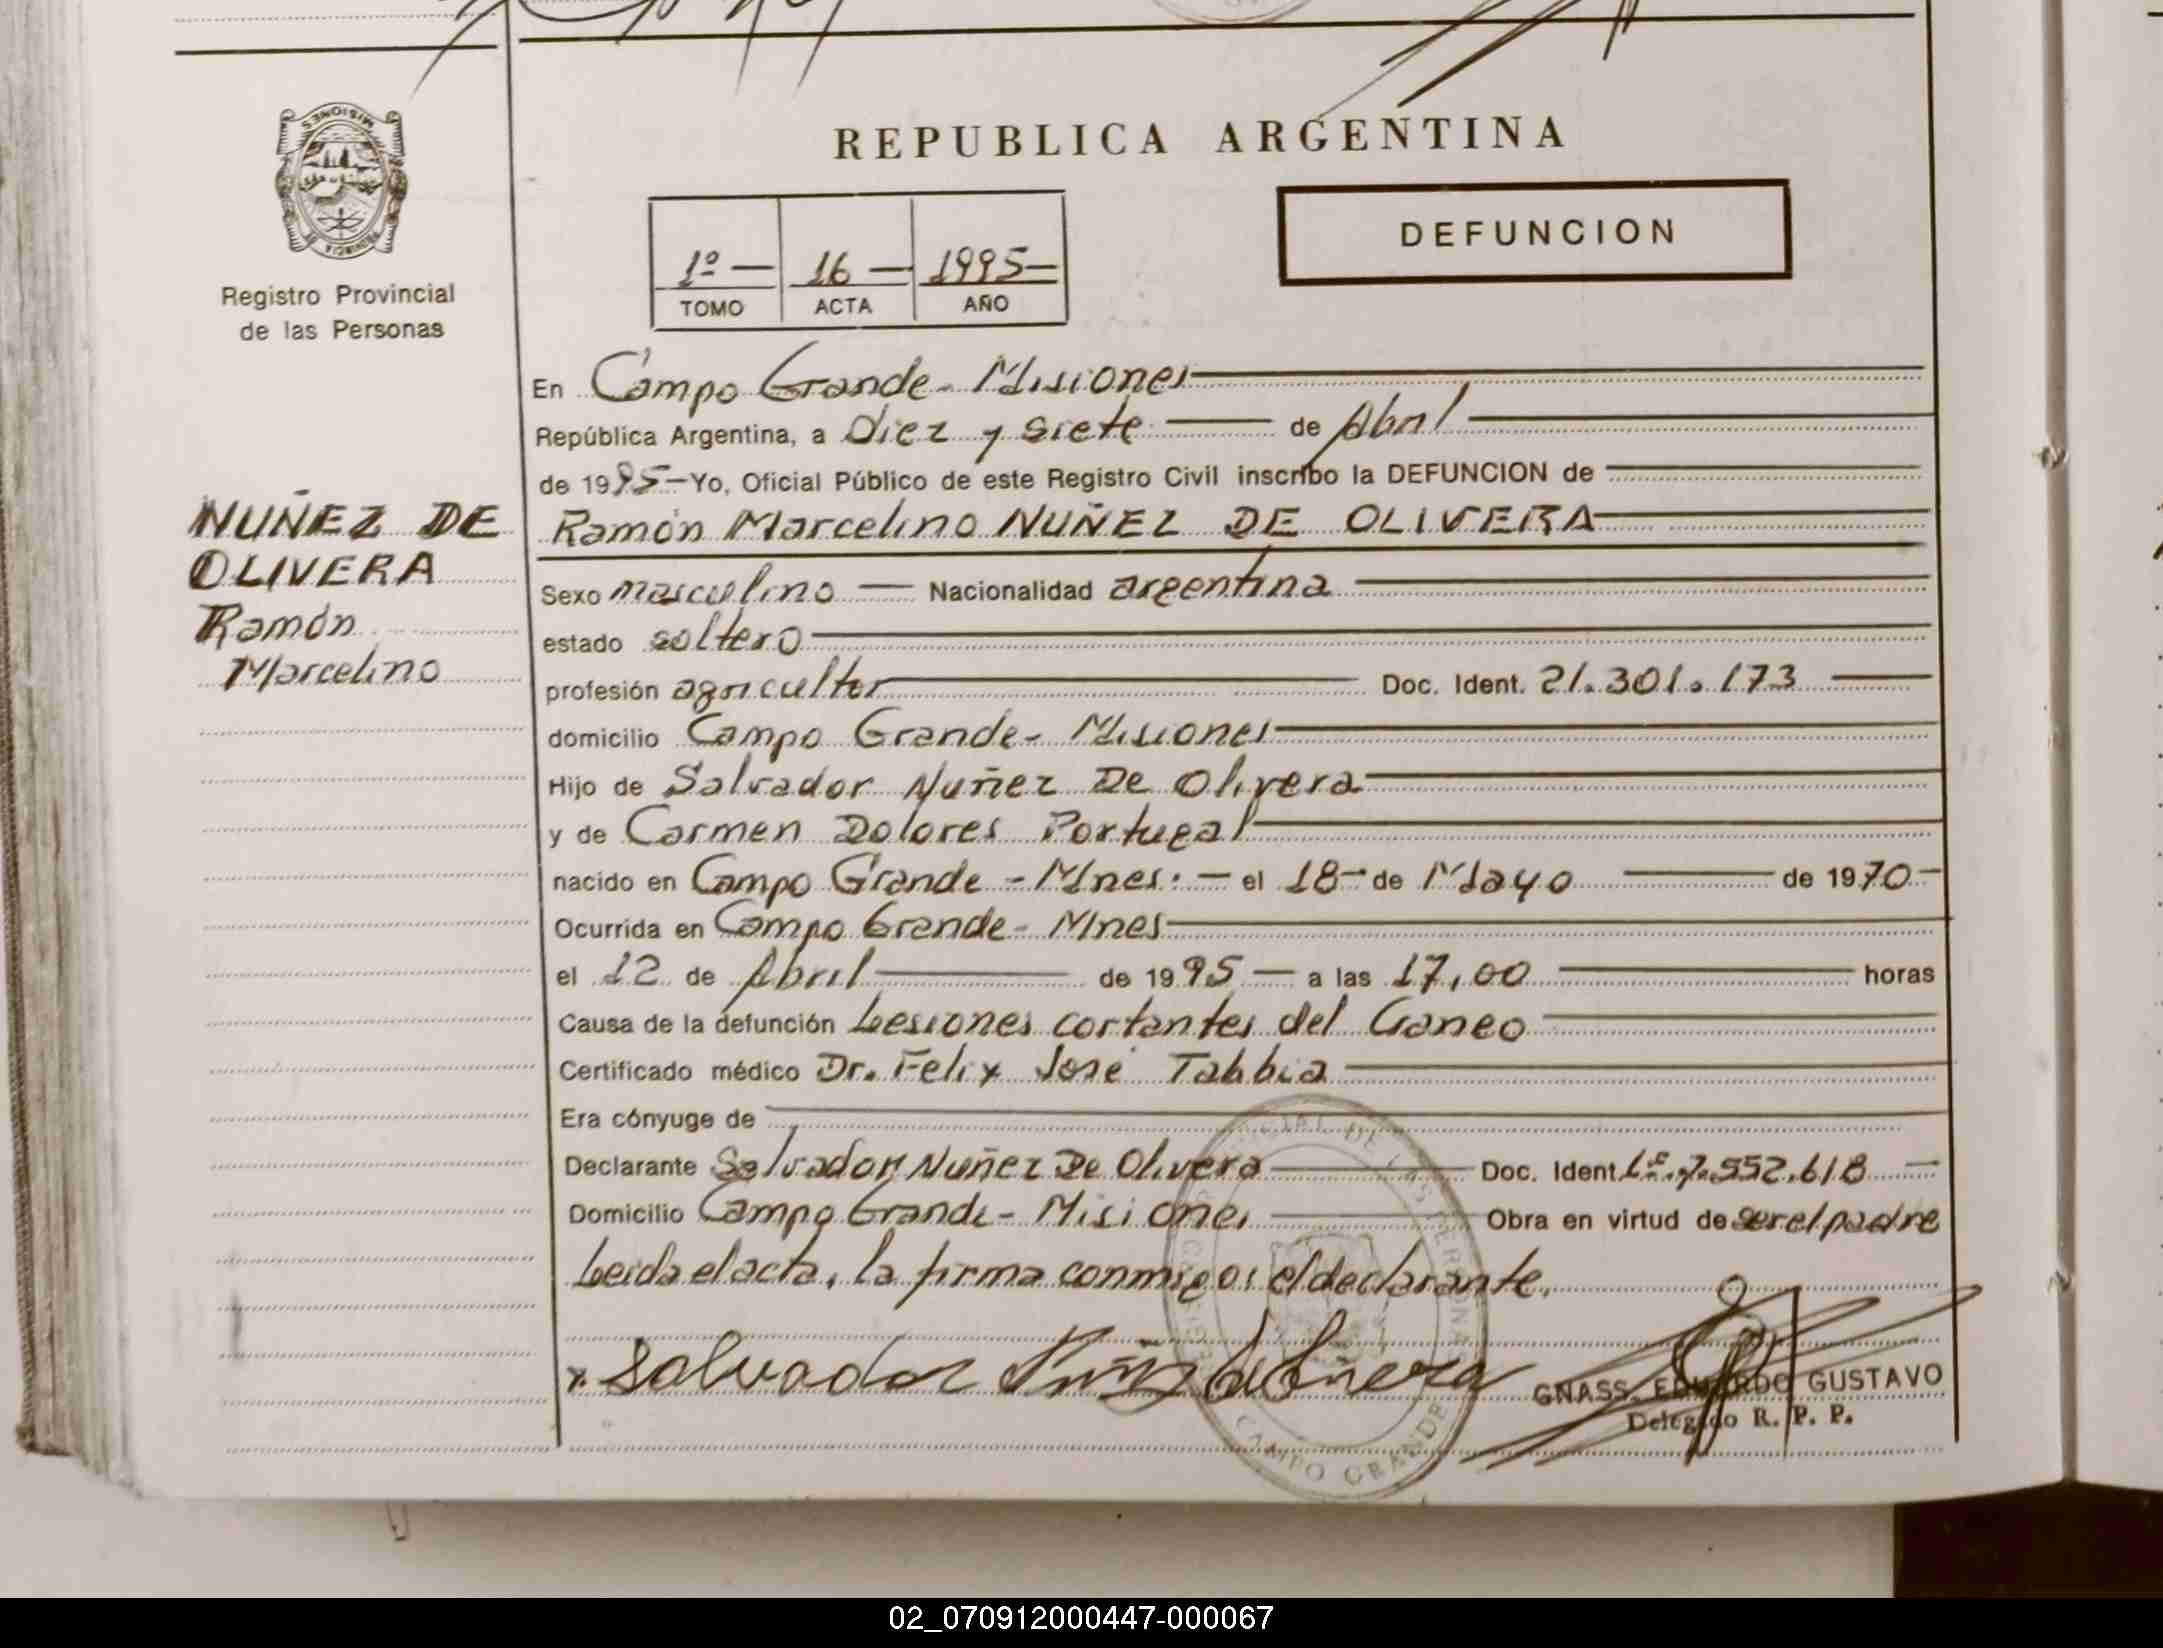 MISIONES
PROVINCIA DE
Registro Provincial
de las Personas
NUÑEZ DE
OLIVERA
Ramón
Marcelino
REPUBLICA ARGENTINA
1º — 16 — 1995 —
TOMO ACTA AÑO
DEFUNCION
En Campo Grande - Misiones
República Argentina, a Diez y siete — de Abril
de 1995 — Yo, Oficial Público de este Registro Civil inscribo la DEFUNCION de
Ramón Marcelino NUÑEZ DE OLIVERA
Sexo masculino — Nacionalidad argentina
estado soltero
profesión agricultor Doc. Ident. 21.301.173
domicilio Campo Grande - Misiones
Hijo de Salvador Nuñez De Olivera
y de Carmen Dolores Portugal
nacido en Campo Grande - Mnes. — el 18 — de Mayo — de 1970 —
Ocurrida en Campo Grande - Mnes
el 12 de Abril — de 1995 — a las 17,00 — horas
Causa de la defunción Lesiones cortantes del Craneo
Certificado médico Dr. Felix José Tabbia
Era cónyuge de
Declarante Salvador Nuñez De Olivera — Doc. Ident. L.E. 7.552.618 —
Domicilio Campo Grande - Misiones — Obra en virtud de ser el padre
Leida el acta, la firma conmigo: el declarante.
x. Salvador Nuñez de Olivera
GNASS. EDUARDO GUSTAVO
Delegado R. P. P.
CAMPO GRANDE
02_070912000447-000067